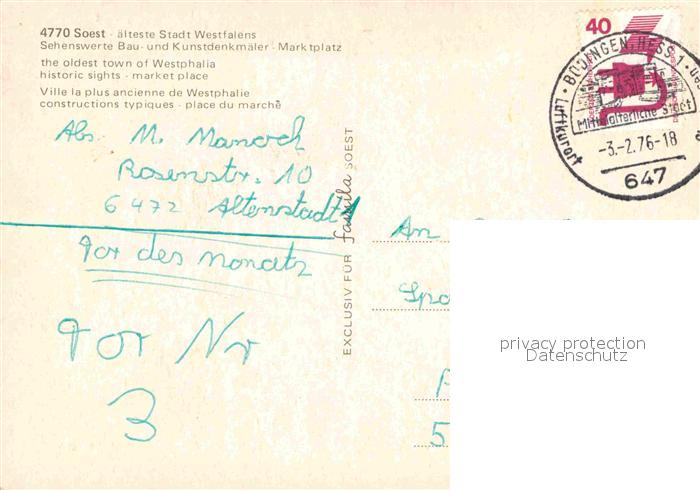 4770 Soest - älteste Stadt Westfalens
Sehenswerte Bau- und Kunstdenkmäler - Marktplatz
the oldest town of Westphalia
historic sights - market place
Ville la plus ancienne de Westphalie
constructions typiques - place du marché
Abs. M. Manoch
Rosenstr. 10
6472 Altenstadt 1
Tor des Monats
Tor Nr
3
EXCLUSIV FÜR familia SOEST
40
BÜDINGEN, HESS
Luftkurort
Mittelalterliche Stadt
-3.-2.76-18
647
An
Spo
5
privacy protection
Datenschutz